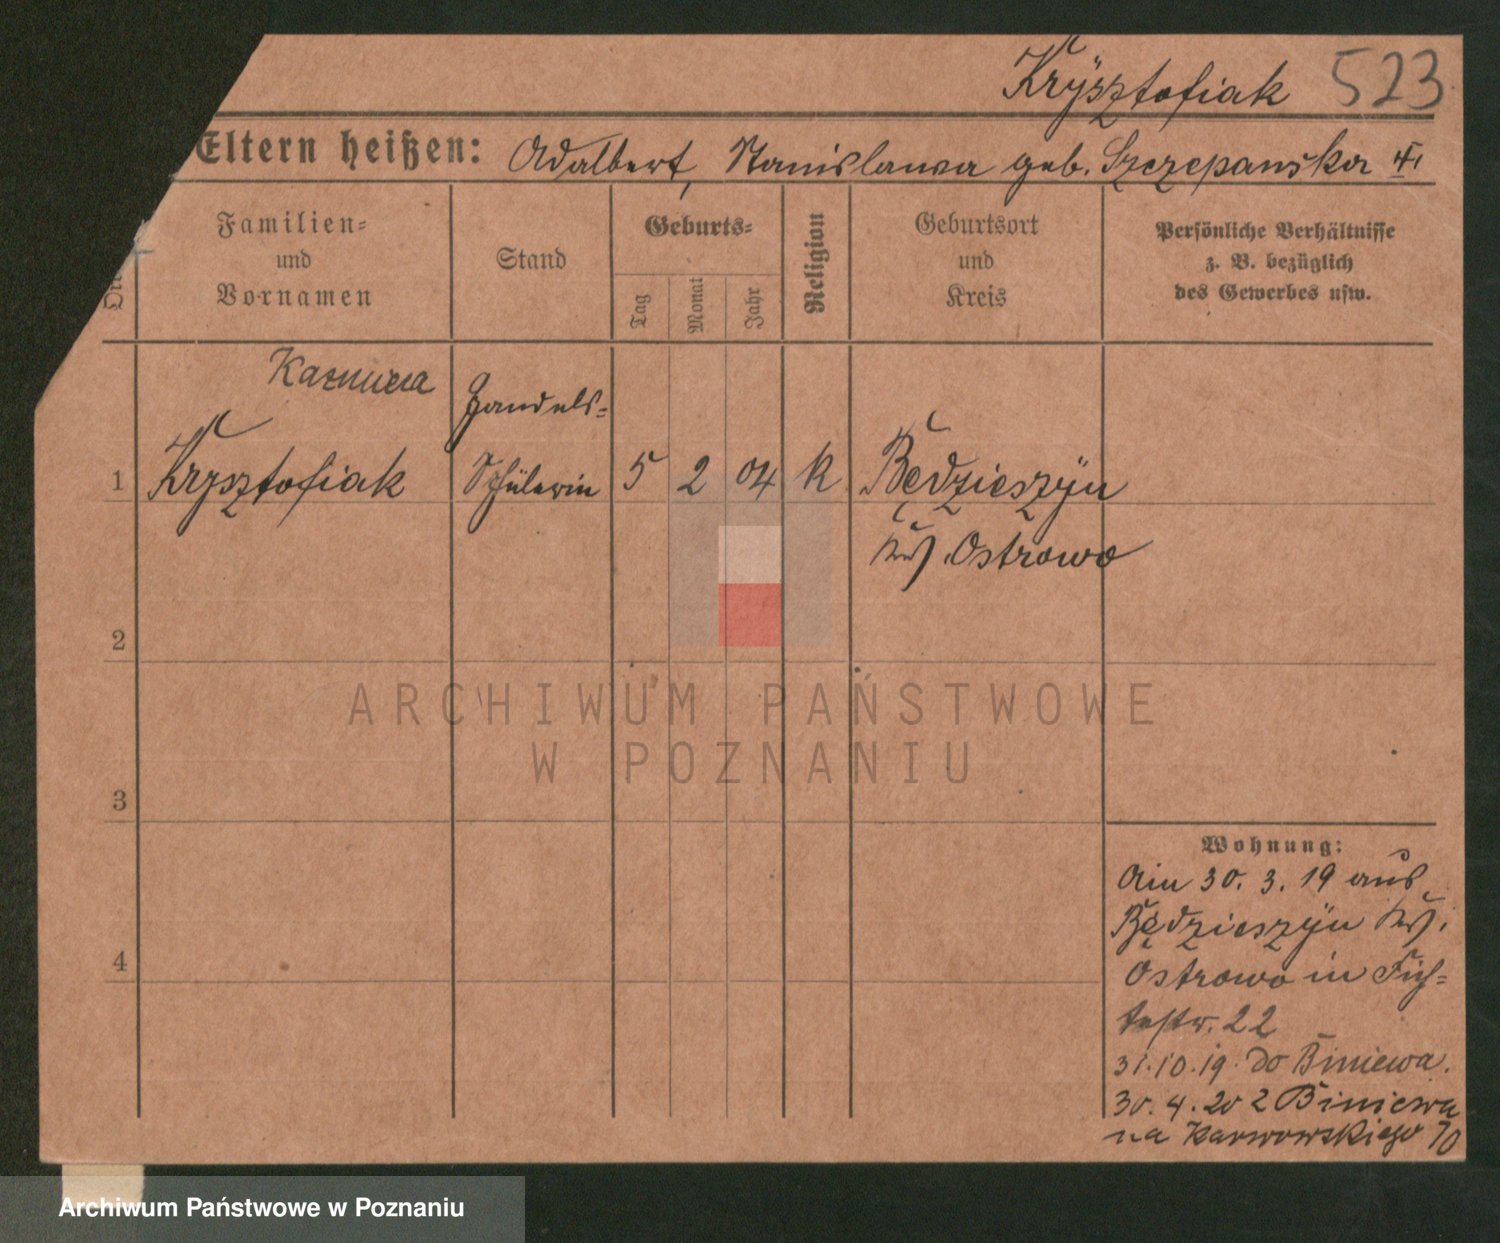 Krÿsztofiak 523
Eltern heißen: Adalbert, Stanislawa geb. Szczepanska
Nr.
Familien-
und
Vornamen
Stand
Geburts-
Tag
Monat
Jahr
Religion
Geburtsort
und
Kreis
Persönliche Verhältnisse
z. B. bezüglich
des Gewerbes usw.
Kazmiera
1 Krysztofiak
Handels-
Schülerin
5 2 04 K
Będzieszÿn
Krs. Ostrowo
2
3
4
ARCHIWUM PAŃSTWOWE
W POZNANIU
Wohnung:
Am 30. 3. 19 aus
Będzieszÿn Krs.
Ostrowo in Fich-
testr. 22
31.10.19. do Biniewa.
30. 4. 20 z Biniewa
na Karwowskiego 70
Archiwum Państwowe w Poznaniu